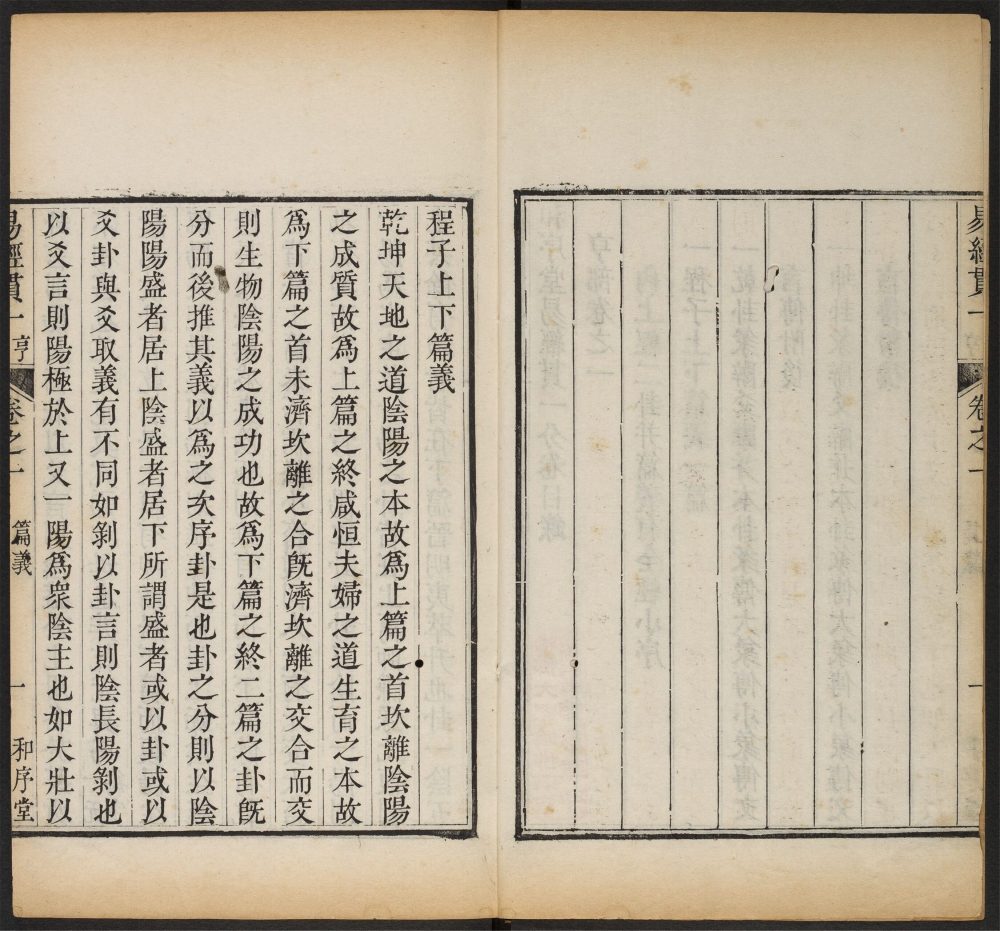 易經貫一
卷之一
一
程子上下篇義
乾坤天地之道陰陽之本故爲上篇之首坎離陰陽
之成質故爲上篇之終咸恒夫婦之道生育之本故
爲下篇之首未濟坎離之合旣濟坎離之交合而交
則生物陰陽之成功也故爲下篇之終二篇之卦旣
分而後推其義以爲之次序卦是也卦之分則以陰
陽陽盛者居上陰盛者居下所謂盛者或以卦或以
爻卦與爻取義有不同如剝以卦言則陰長陽剝也
以爻言則陽極於上又一陽爲衆陰主也如大壯以
易經貫一 亨
卷之一 篇義
一 和序堂